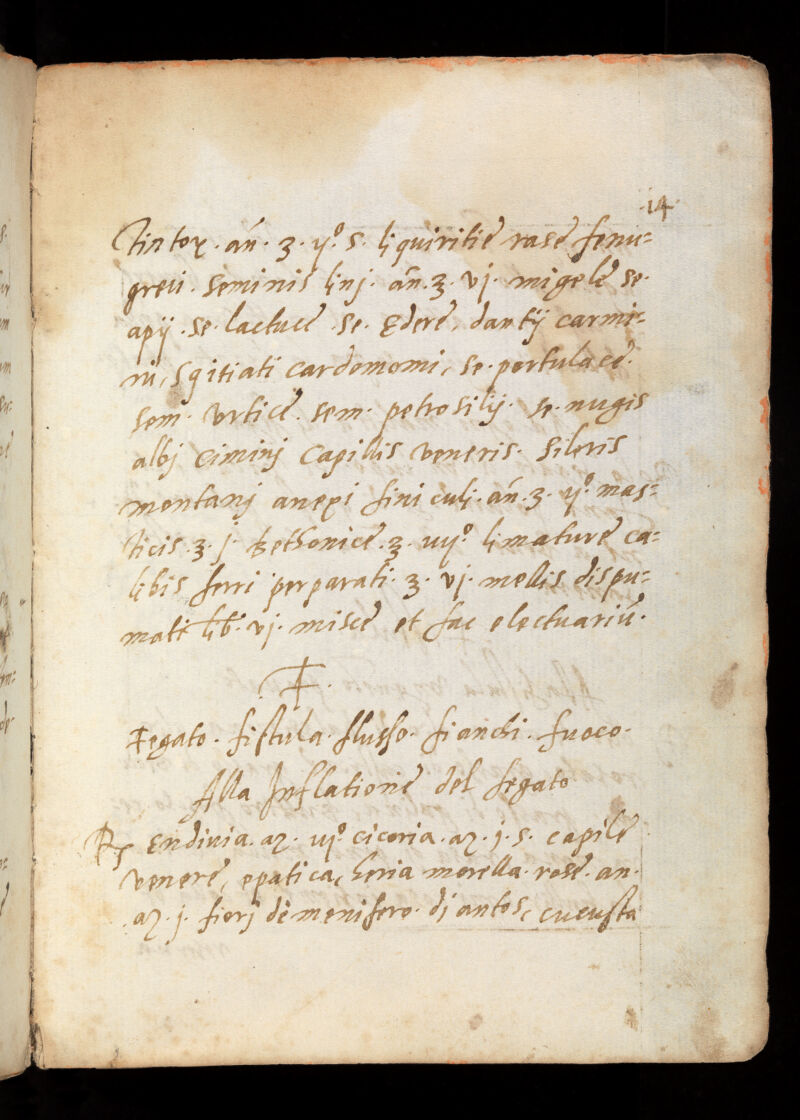 14
Tintox. añ. ʒ. ijº. s. liquiritie rase fenu=
greci. seminis linj. añ. ʒ. vj. migele se.
apij. se. lactuce. se. Edere, dantij carmi=
ni, sqitiati cardomomi, se. portulace.
sem. Vrtice. sem. petrosilij. se. nugis
albj ciminj capillis veneris. Sileris
montanj anexi finiculj. añ. ʒ. ijº. mas=
ticis. ʒ. j. bethonice. ʒ. iiijº. limature ca=
libis ferri perparati. ʒ. vj. mellis dispu=
mati lib. vj. misce et fac electuariũ.
F.
Fegato. fistula. flusso. fianchi. fuoco.
Alla Inflatione del fegato
Rx Endivia. aʒ. iijº. cicoria. aʒ. j. s. capile
venere, epatica, heria morella. rose. an.
aʒ. j. fiorj de menifero. di antos, cucusta